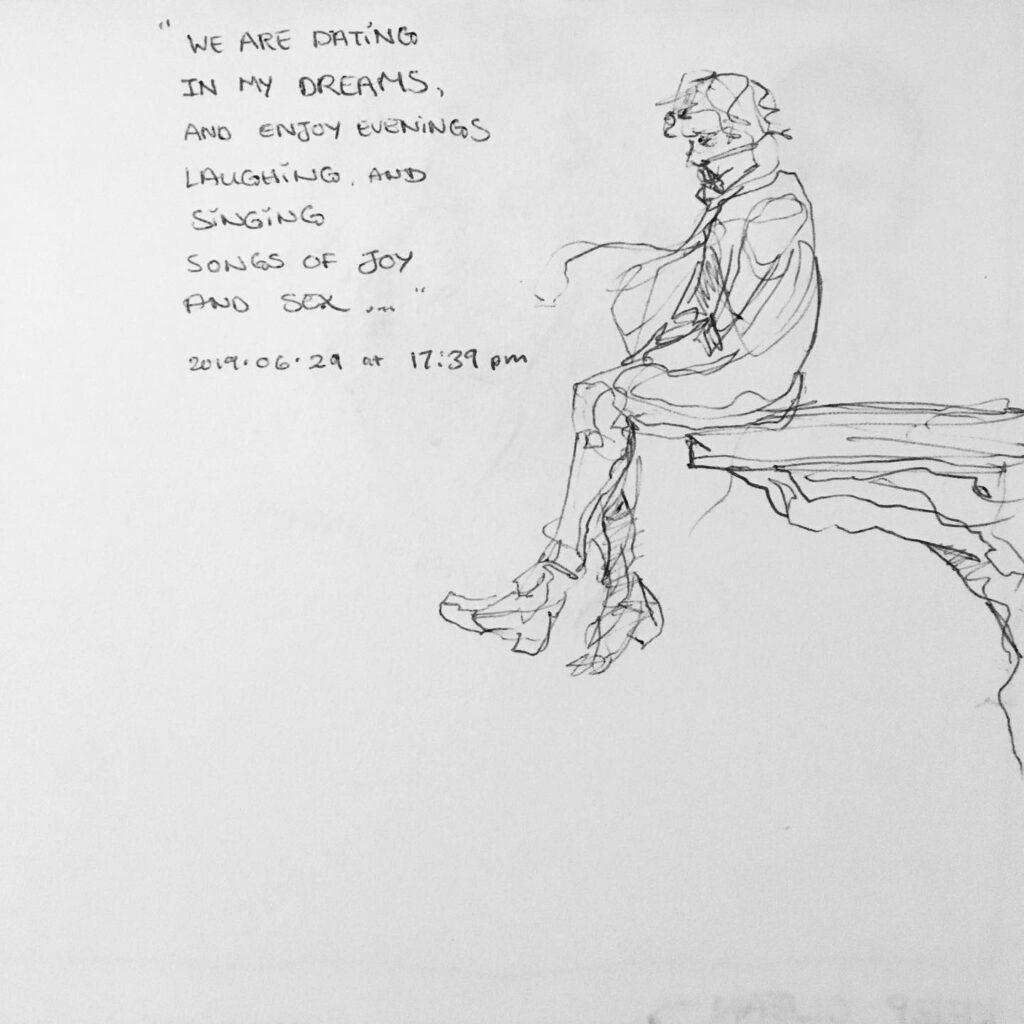 "WE ARE DATING
IN MY DREAMS,
AND ENJOY EVENINGS
LAUGHING, AND
SINGING
SONGS OF JOY
AND SEX ..."
2019.06.29 at 17:39 pm